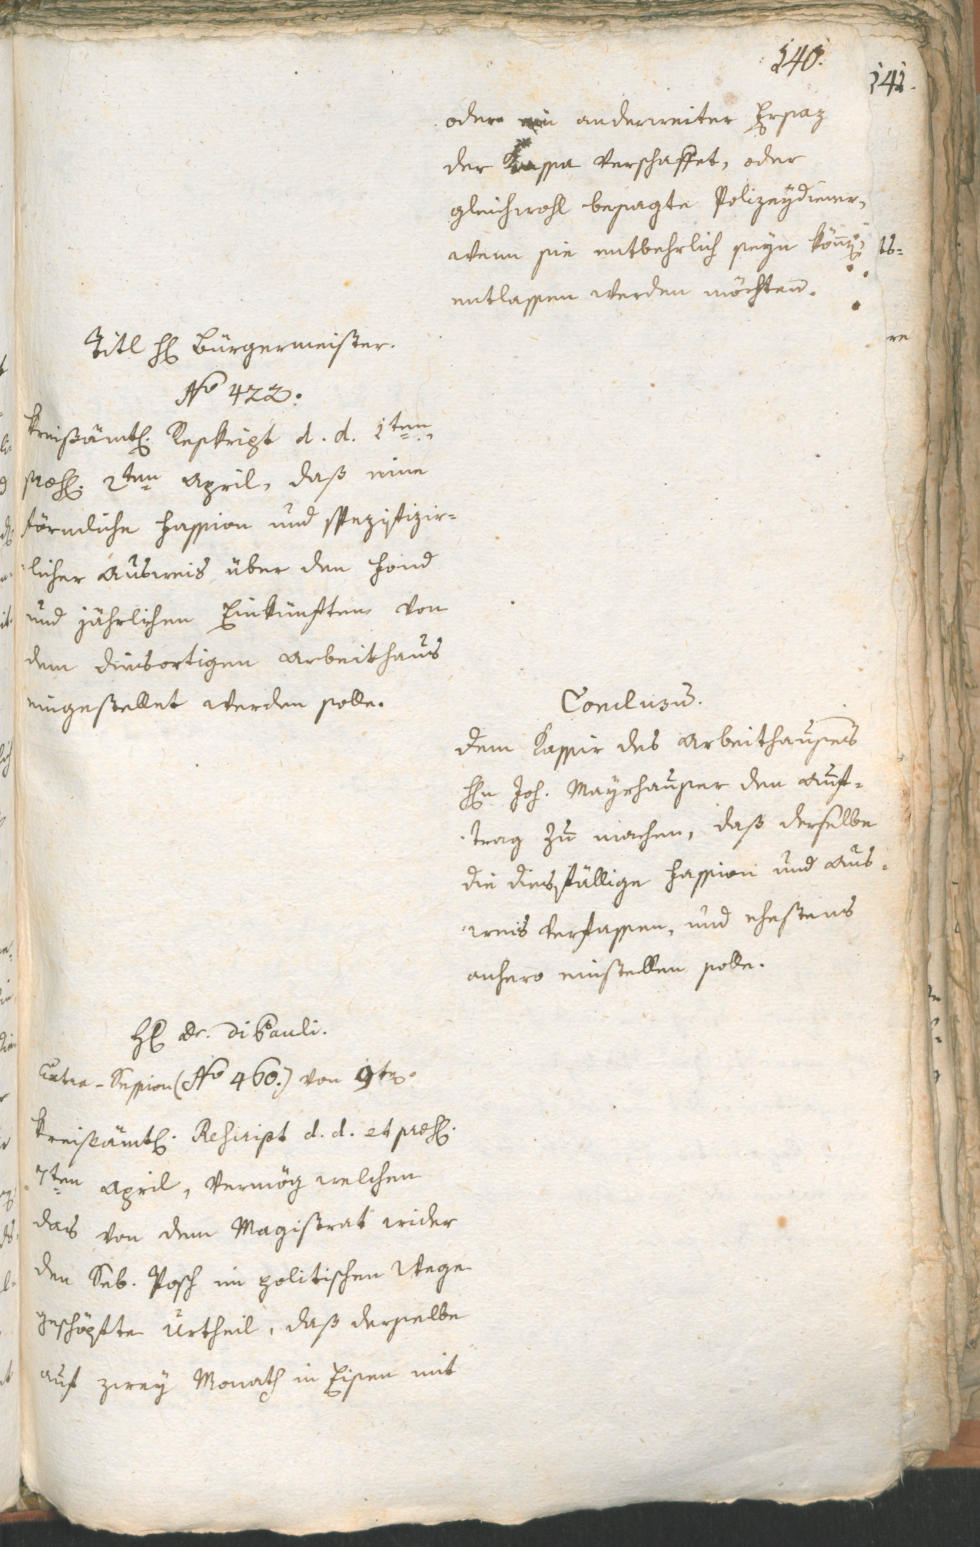 140.
141.
oder ein anderweiter Ersaz
der Kassa verschaffet, oder
gleichwohl besagte Polizeydiener,
wenn sie entbehrlich seyn könn̄
entlassen werden möchten.
Titl H Bürgermeister.
No 422.
Kreisämtl. Reskript d. d. 1ten
præs. 2ten April, daß eine
förmliche Fassion und spezifizir=
licher Ausweis über den Fond
und jährlichen Einkünften von
dem diesortigen Arbeithaus
eingestellet werden solle.
Conclusū.
dem Kassir des Arbeithauses
Hn Joh. Mayrhauser den Auf=
trag zu machen, daß derselbe
die diesfällige Fassion und Aus=
weis verfassen, und ehestens
anhero einstellen solle.
H Dr. Di Pauli.
Extra-Session (No 460.) von 9t
Kreisämtl. Rescript d. d. et præs.
7ten April, vermög welchen
das von dem Magistrat wider
den Seb. Posch im politischen Wege
geschöpfte Urtheil, daß derselbe
auf zwey Monath in Eisen mit